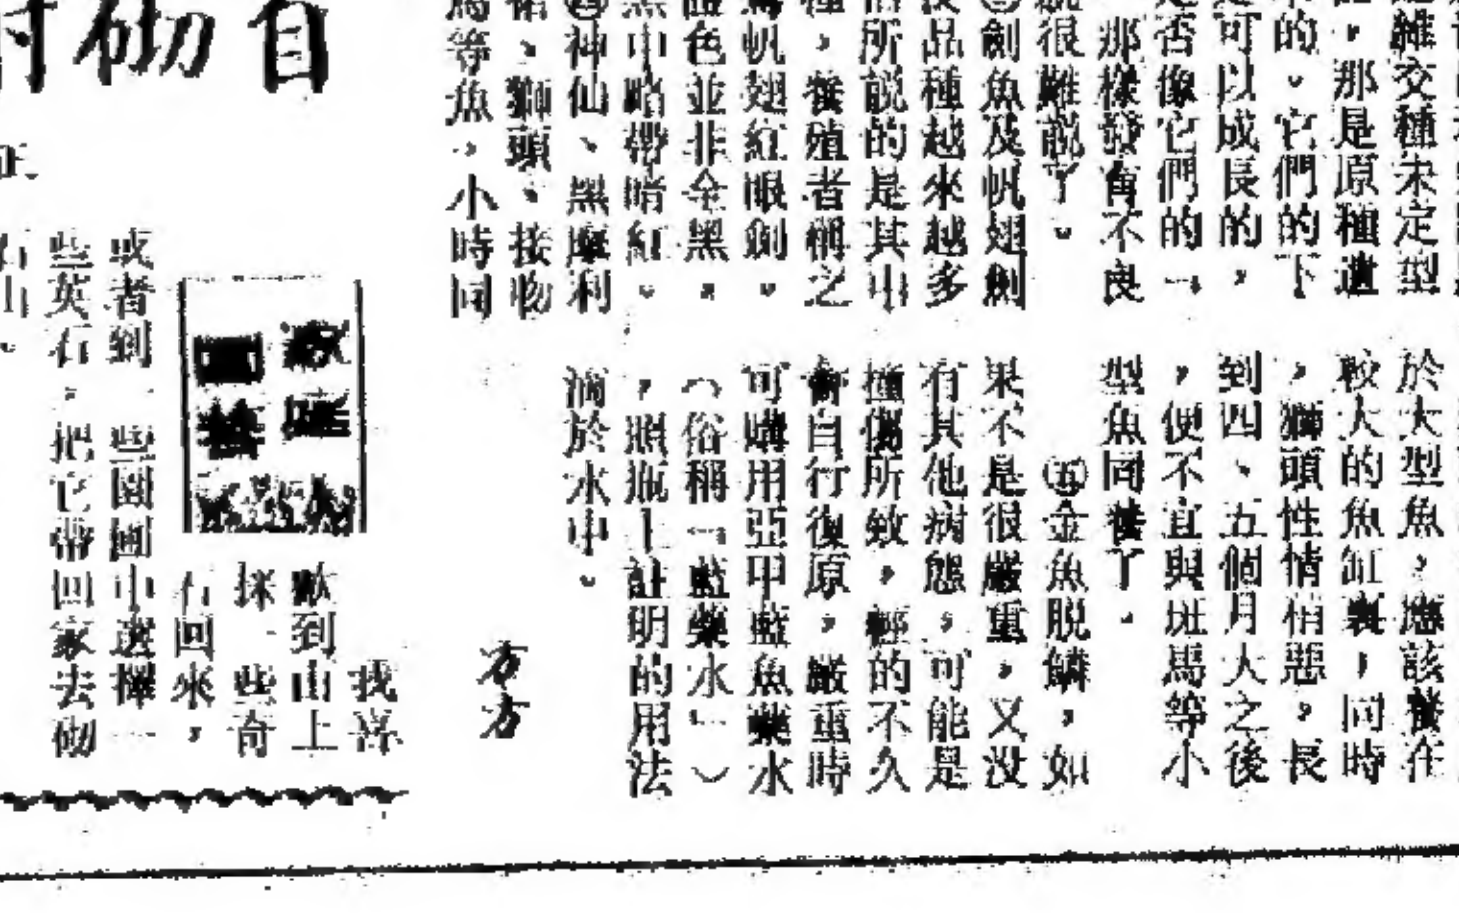 雜交種未定型
，那是原種遺
的。它們的下
可以成長的，
否像它們的一
那樣發育不良
很難說了。
劍魚及帆翅劍
品種越來越多
所說的是其中
，養殖者稱之
帆翅紅眼劍。
色並非全黑，
黑中略帶暗紅。
神仙、黑摩利
、獅頭、接吻
馬等魚，小時同
於大型魚，應該養在
較大的魚缸裏，同時
，獅頭性情梢惡，長
到四、五個月大之後
，便不宜與斑馬等小
型魚同養了。
㊄金魚脫鱗，如
果不是很嚴重，又没
有其他病態，可能是
撞傷所致，輕的不久
會自行復原，嚴重時
可購用亞甲藍魚藥水
（俗稱「藍藥水」）
，照瓶上註明的用法
滴於水中。
方方
自砌
我喜
歡到山上
採一些奇
石回來，
或者到一些園圃中選擇一
些英石，把它帶回家去砌
石山。